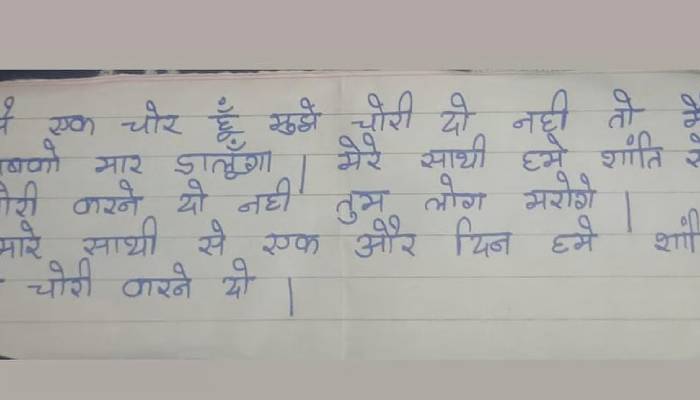 मे एक चोर हूँ मुझे चोरी दो नही तो मे
सबको मार डालूँगा | मेरे साथी हमे शांति से
चोरी करने दो नही तुम लोग मरोगे |
हमारे साथी से एक और दिन हमे शांति
चोरी करने दो |